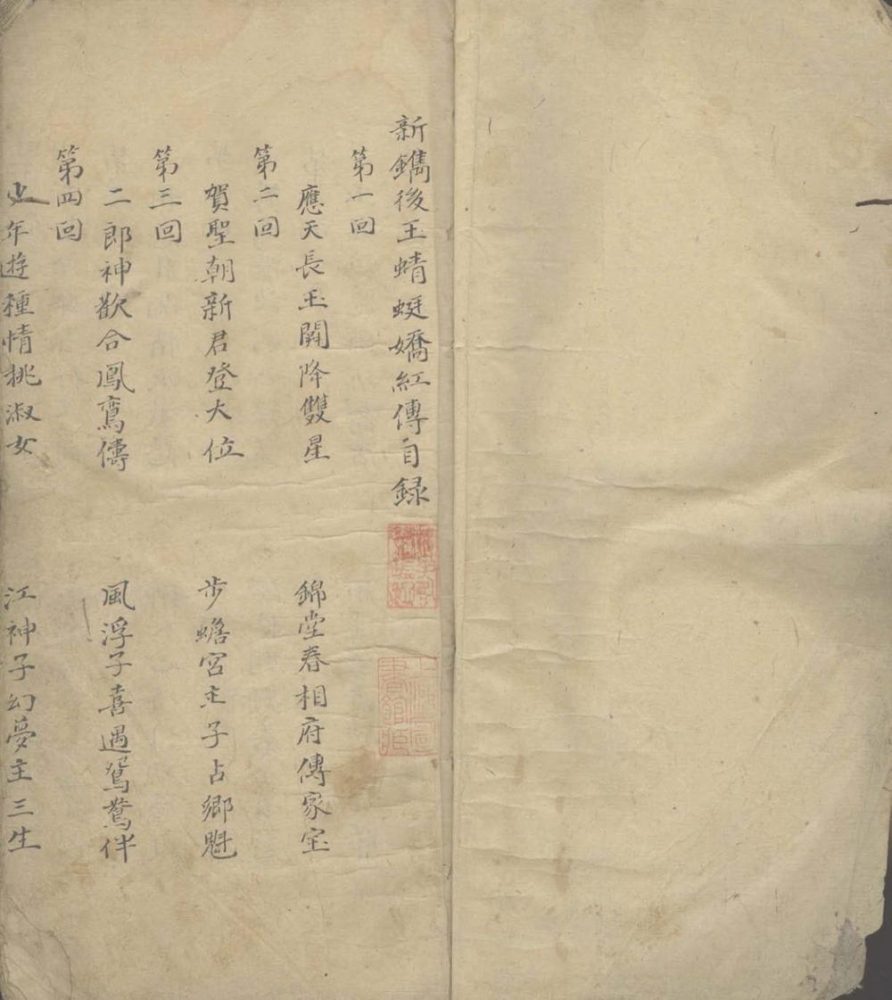 新鐫後玉蜻蜓嬌紅傳自録
第一回
應天長玉闕降雙星 錦堂春相府傳家宝
第二回
賀聖朝新君登大位 步蟾宮主子占鄉魁
第三回
二郎神歡合鳳鸞儔 風浮子喜遇鴛鴦伴
第四回
少年遊種情挑淑女 江神子幻夢主三生